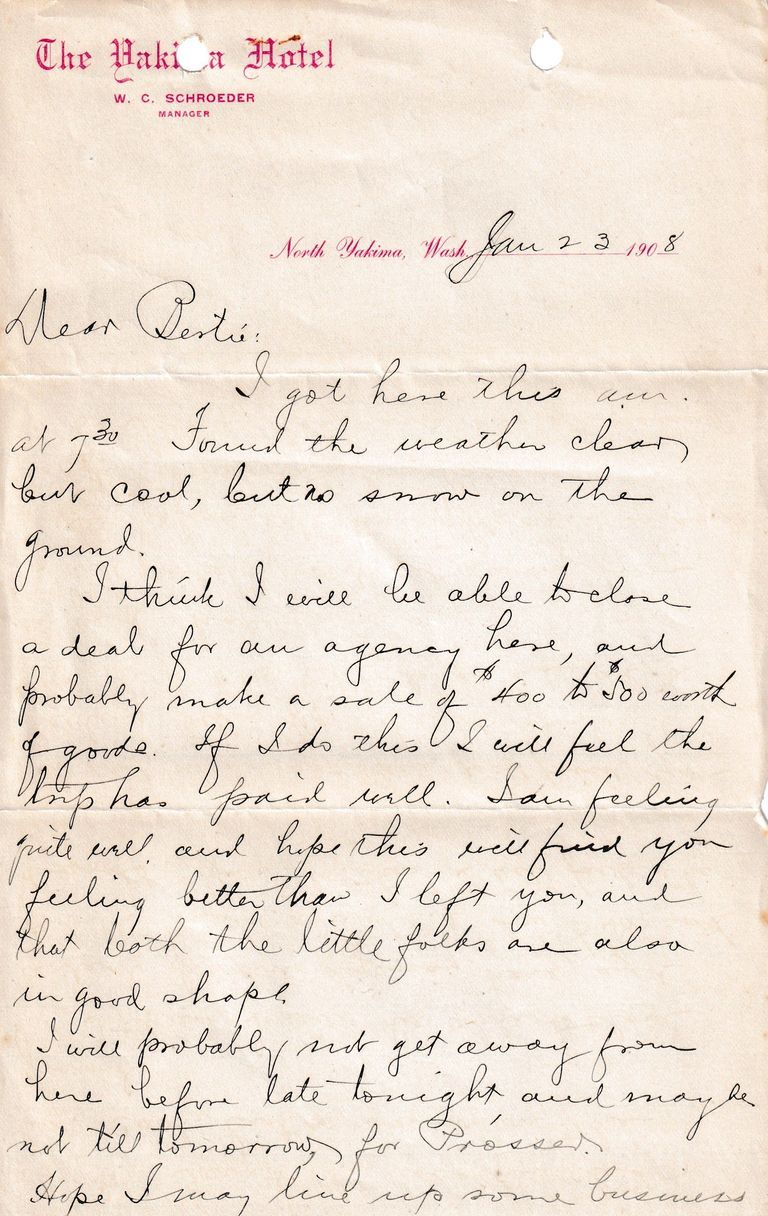 The Yakima Hotel
W. C. SCHROEDER
MANAGER
North Yakima, Wash. Jan 23 1908
Dear Bertie:
I got here this am.
at 7 30 Found the weather clear
but cool, but no snow on the
ground.
I think I will be able to close
a deal for an agency here, and
probably make a sale of $400 to $500 worth
of goods. If I do this I will feel the
trip has paid well. I am feeling
quite well, and hope this will find you
feeling better than I left you, and
that both the little folks are also
in good shape.
I will probably not get away from
here before late tonight and maybe
not till tomorrow, for Prosser.
Hope I may line up some business